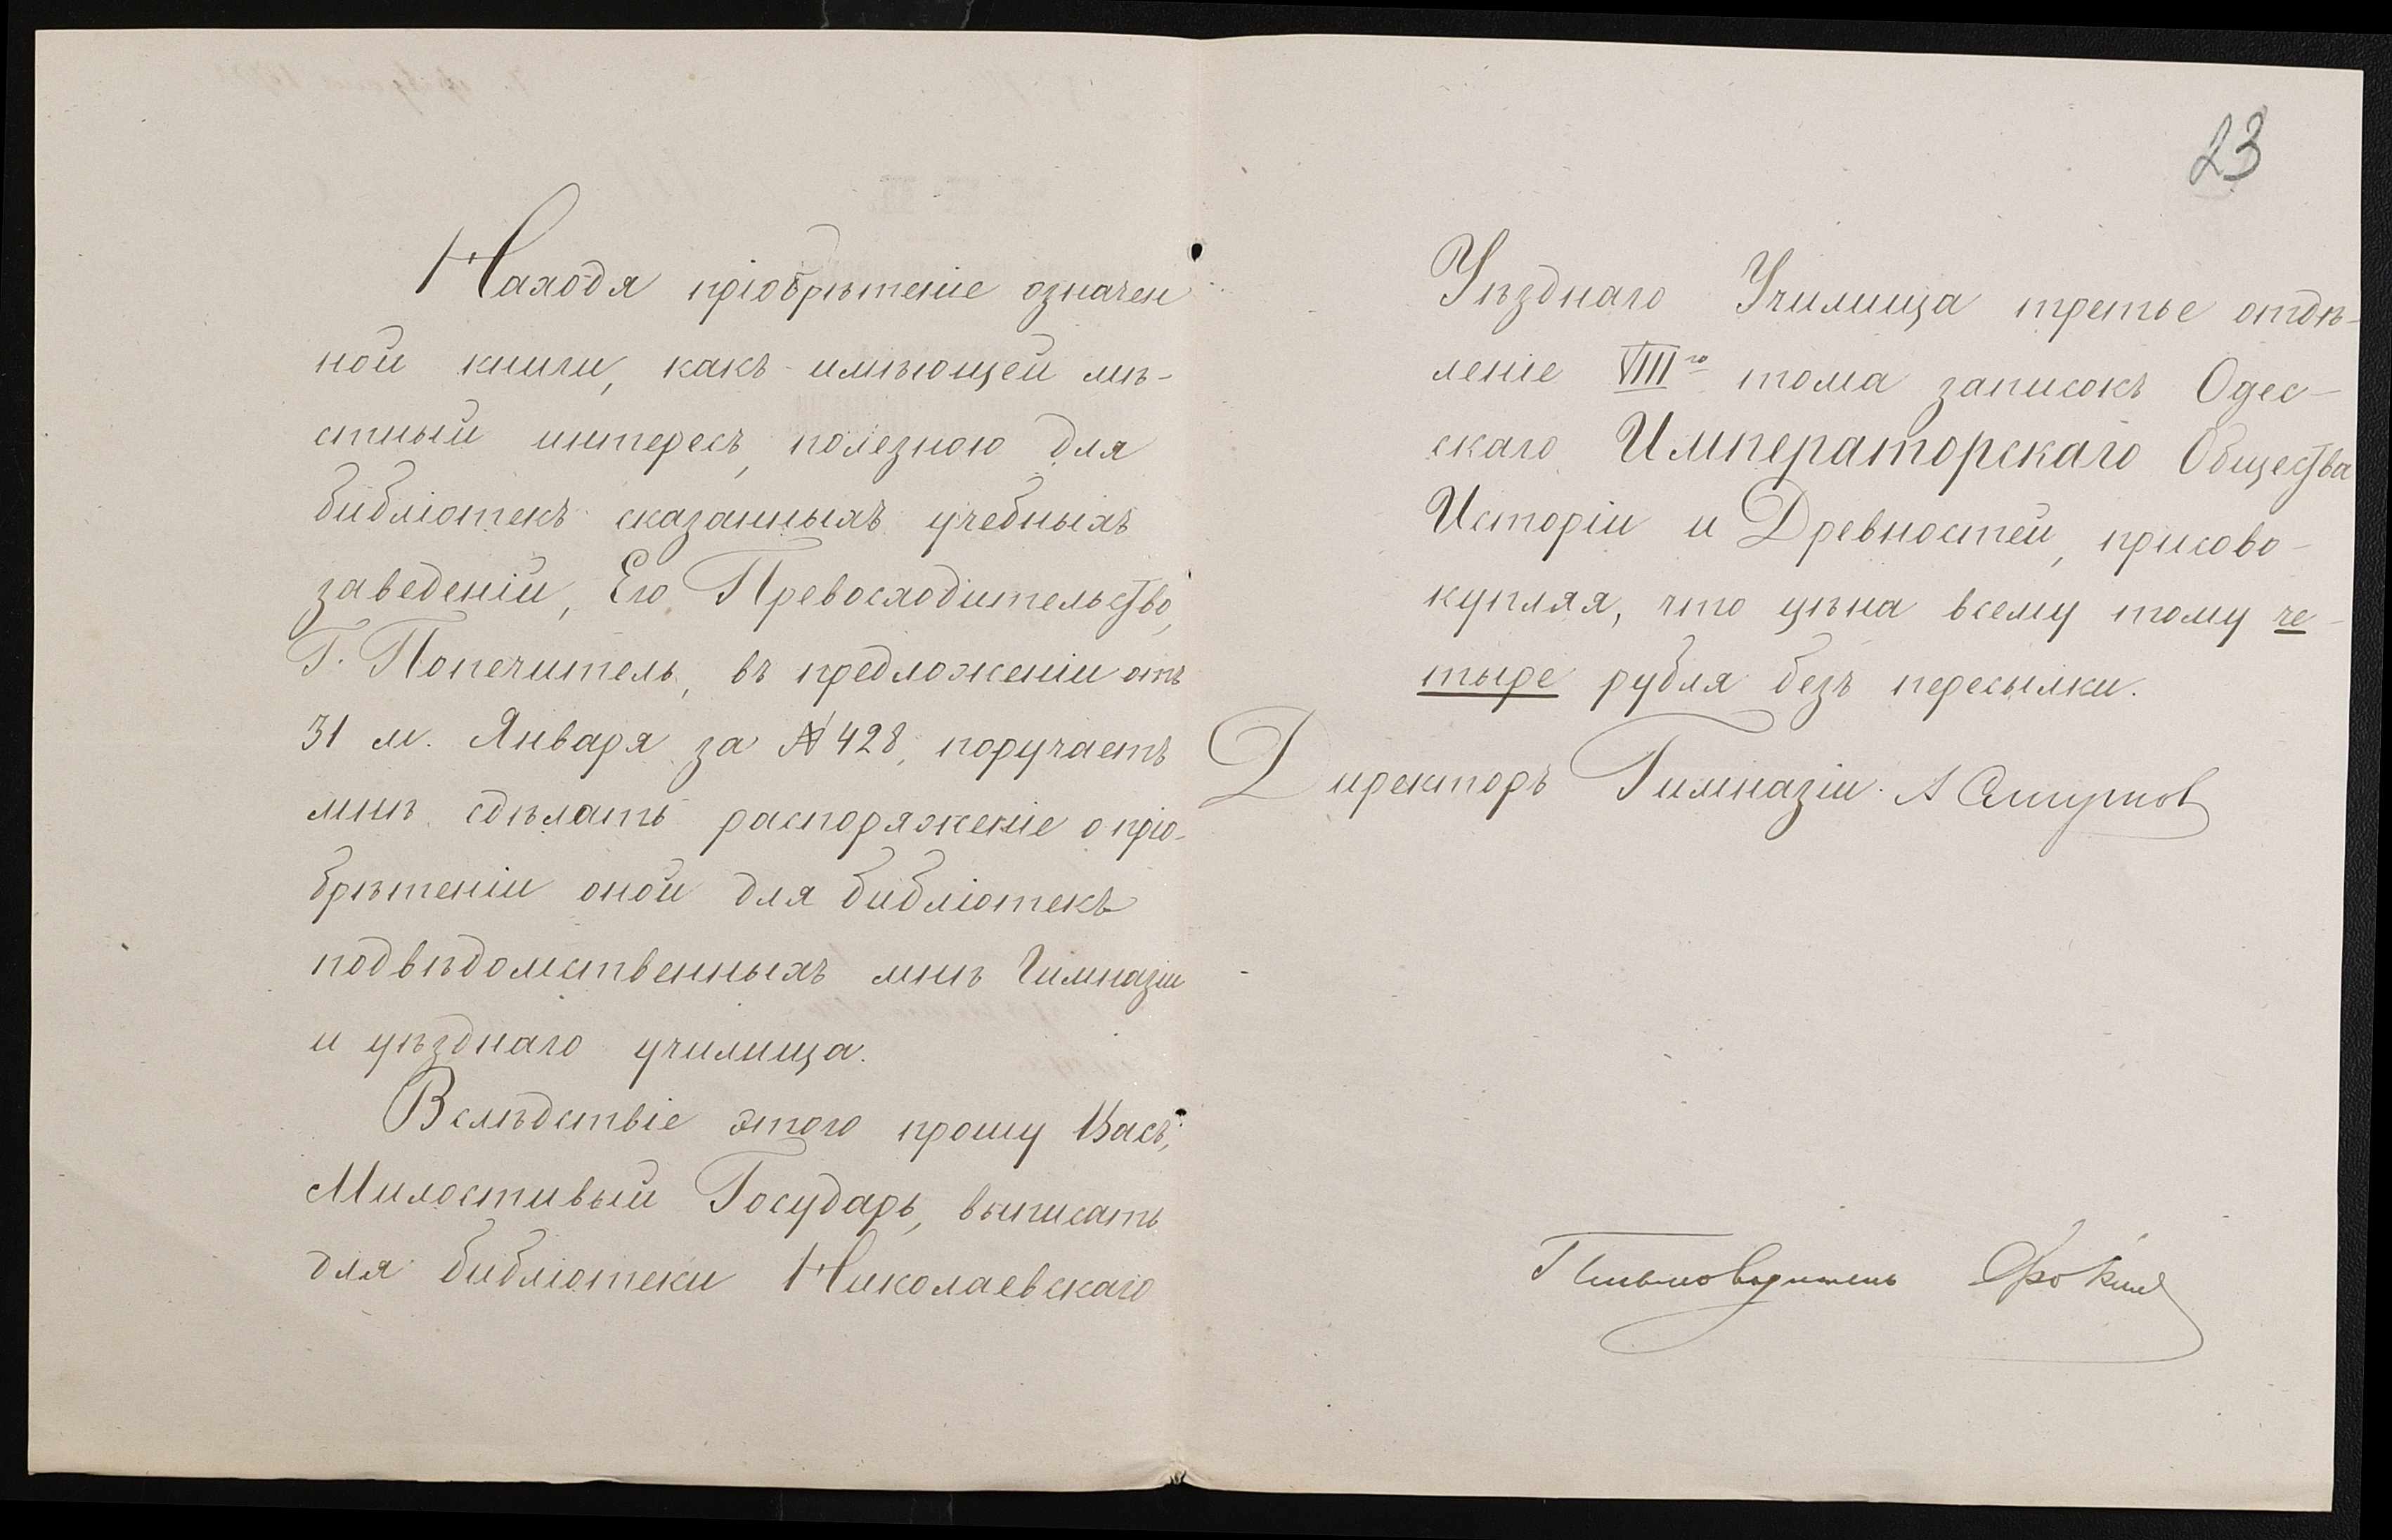 Находя пріобрѣтеніе означен
ной книги, какъ имѣющей мѣ-
стный интересъ, полезною для
библіотекъ сказанныхъ учебныхъ
заведеній, Его Превосходительство,
Г. Попечитель, въ предложеніи отъ
31 м. Января за № 428, поручаетъ
мнѣ сдѣлать распоряженіе о прiо-
брѣтеніи оной для библіотекъ
подвѣдомственныхъ мнѣ Гимназіи
и уѣзднаго училища.
Вслѣдствіе этого прошу Васъ,
Милостивый Государь, выписать
для библіотеки Николаевскаго
23
Уѣзднаго Училища третье отдѣ-
леніе VIII го тома записокъ Одес-
скаго Императорскаго Общества
Исторіи и Древностей, присово-
купляя, что цѣна всему тому че-
тыре рубля безъ пересылки.
Директоръ Гимназіи. А Смирнов
Письмоводитель